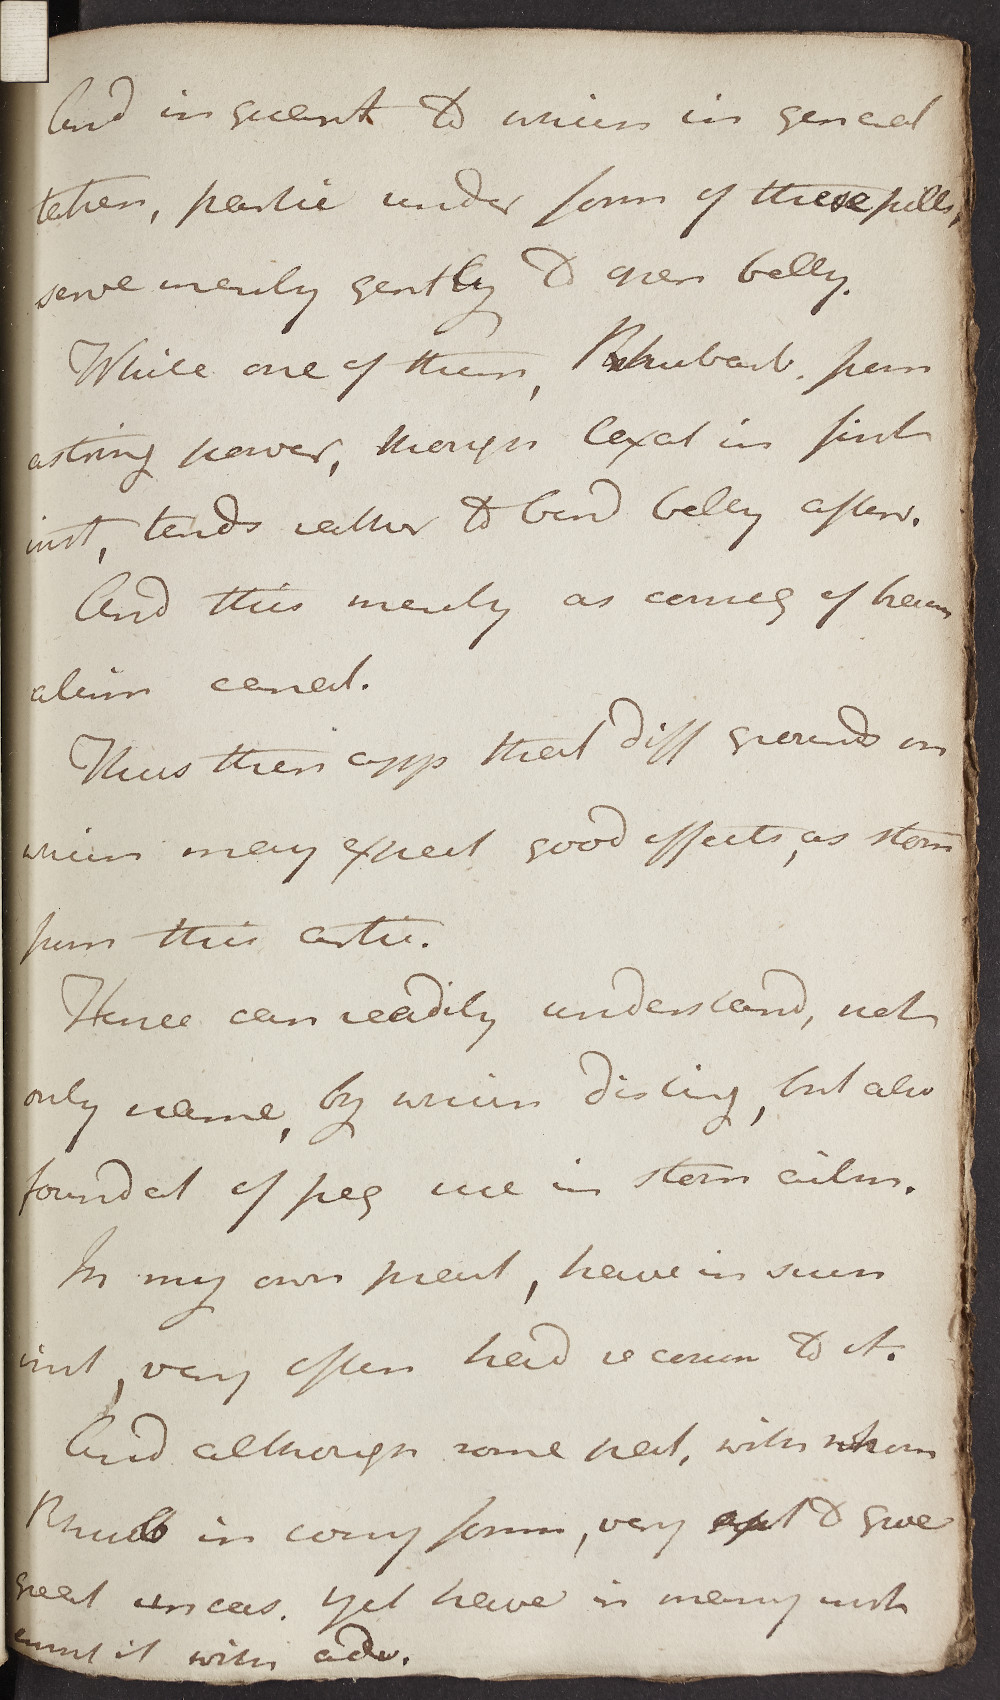 And in quant to which in general
taken, partic under form of these pills,
serve merely gently to open belly.
While one of them, Rhubarb. from
astring power, though laxat in first
inst, tends rather to bind belly afterw.
And this merely as comes of
alim canal.
Thus then app that diff grounds on
which may expect good effects, as stom
from this artic.
Hence can readily understand, not
only name, by which disting, but also
foundat of peg use in stom ailm.
In my own pract, have in such
inst, very often had recours to it.
And although some pat, with whom
Rhub in every form, very apt to give
great uneas. Yet have in many inst
it with adv.